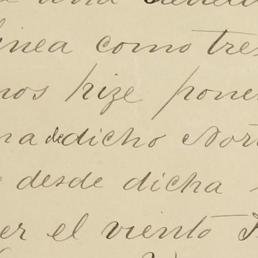 una
linea como tres
nos hize pone
na de dicho Nor
desde dicha
er el viento